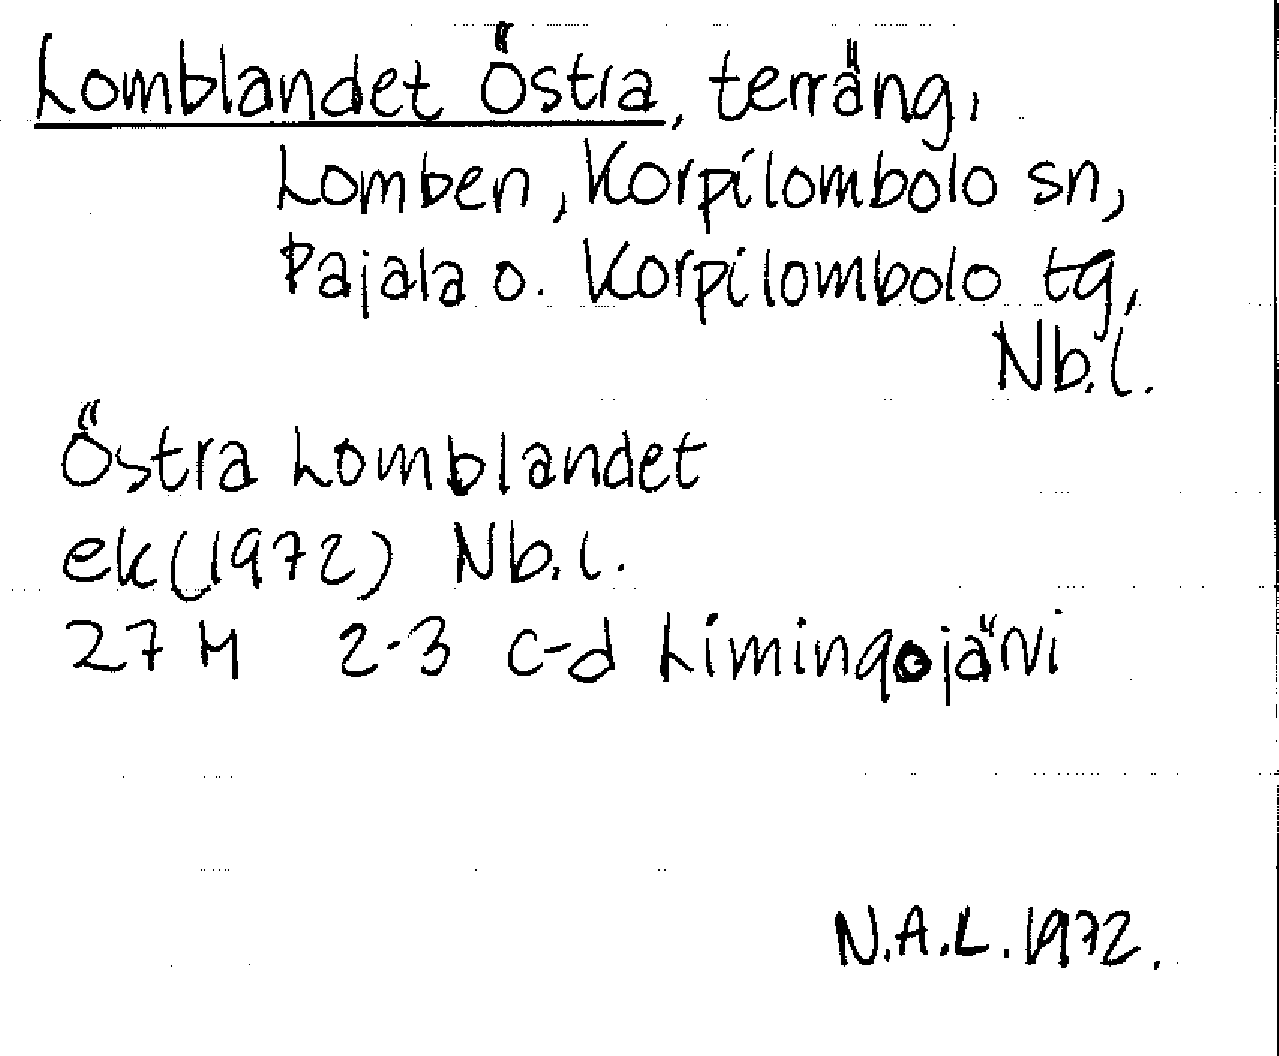 Lomblandet Östra, terräng,
Lomben, Korpilombolo sn,
Pajala o. Korpilombolo tg,
Nb.l.
Östra Lomblandet
ek(1972) Nb.l.
27 M 2-3 c-d Limingojärvi
N.A.L. 1972.